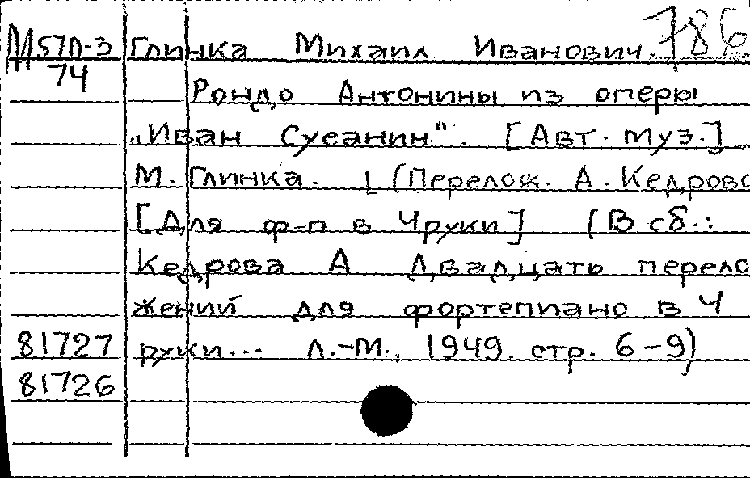 М57П-3 Глинка Михаил Иванович. 786
74 Рондо Антонины из оперы
„Иван Сусанин". [Авт. муз.]
М. Глинка. [(Перелож. А. Кедрова
[Для ф-п в 4 руки] (В сб.:
Кедрова А Двадцать перело
жений для фортепиано в 4
81727 руки... Л.-М., 1949. стр. 6-9)
81726